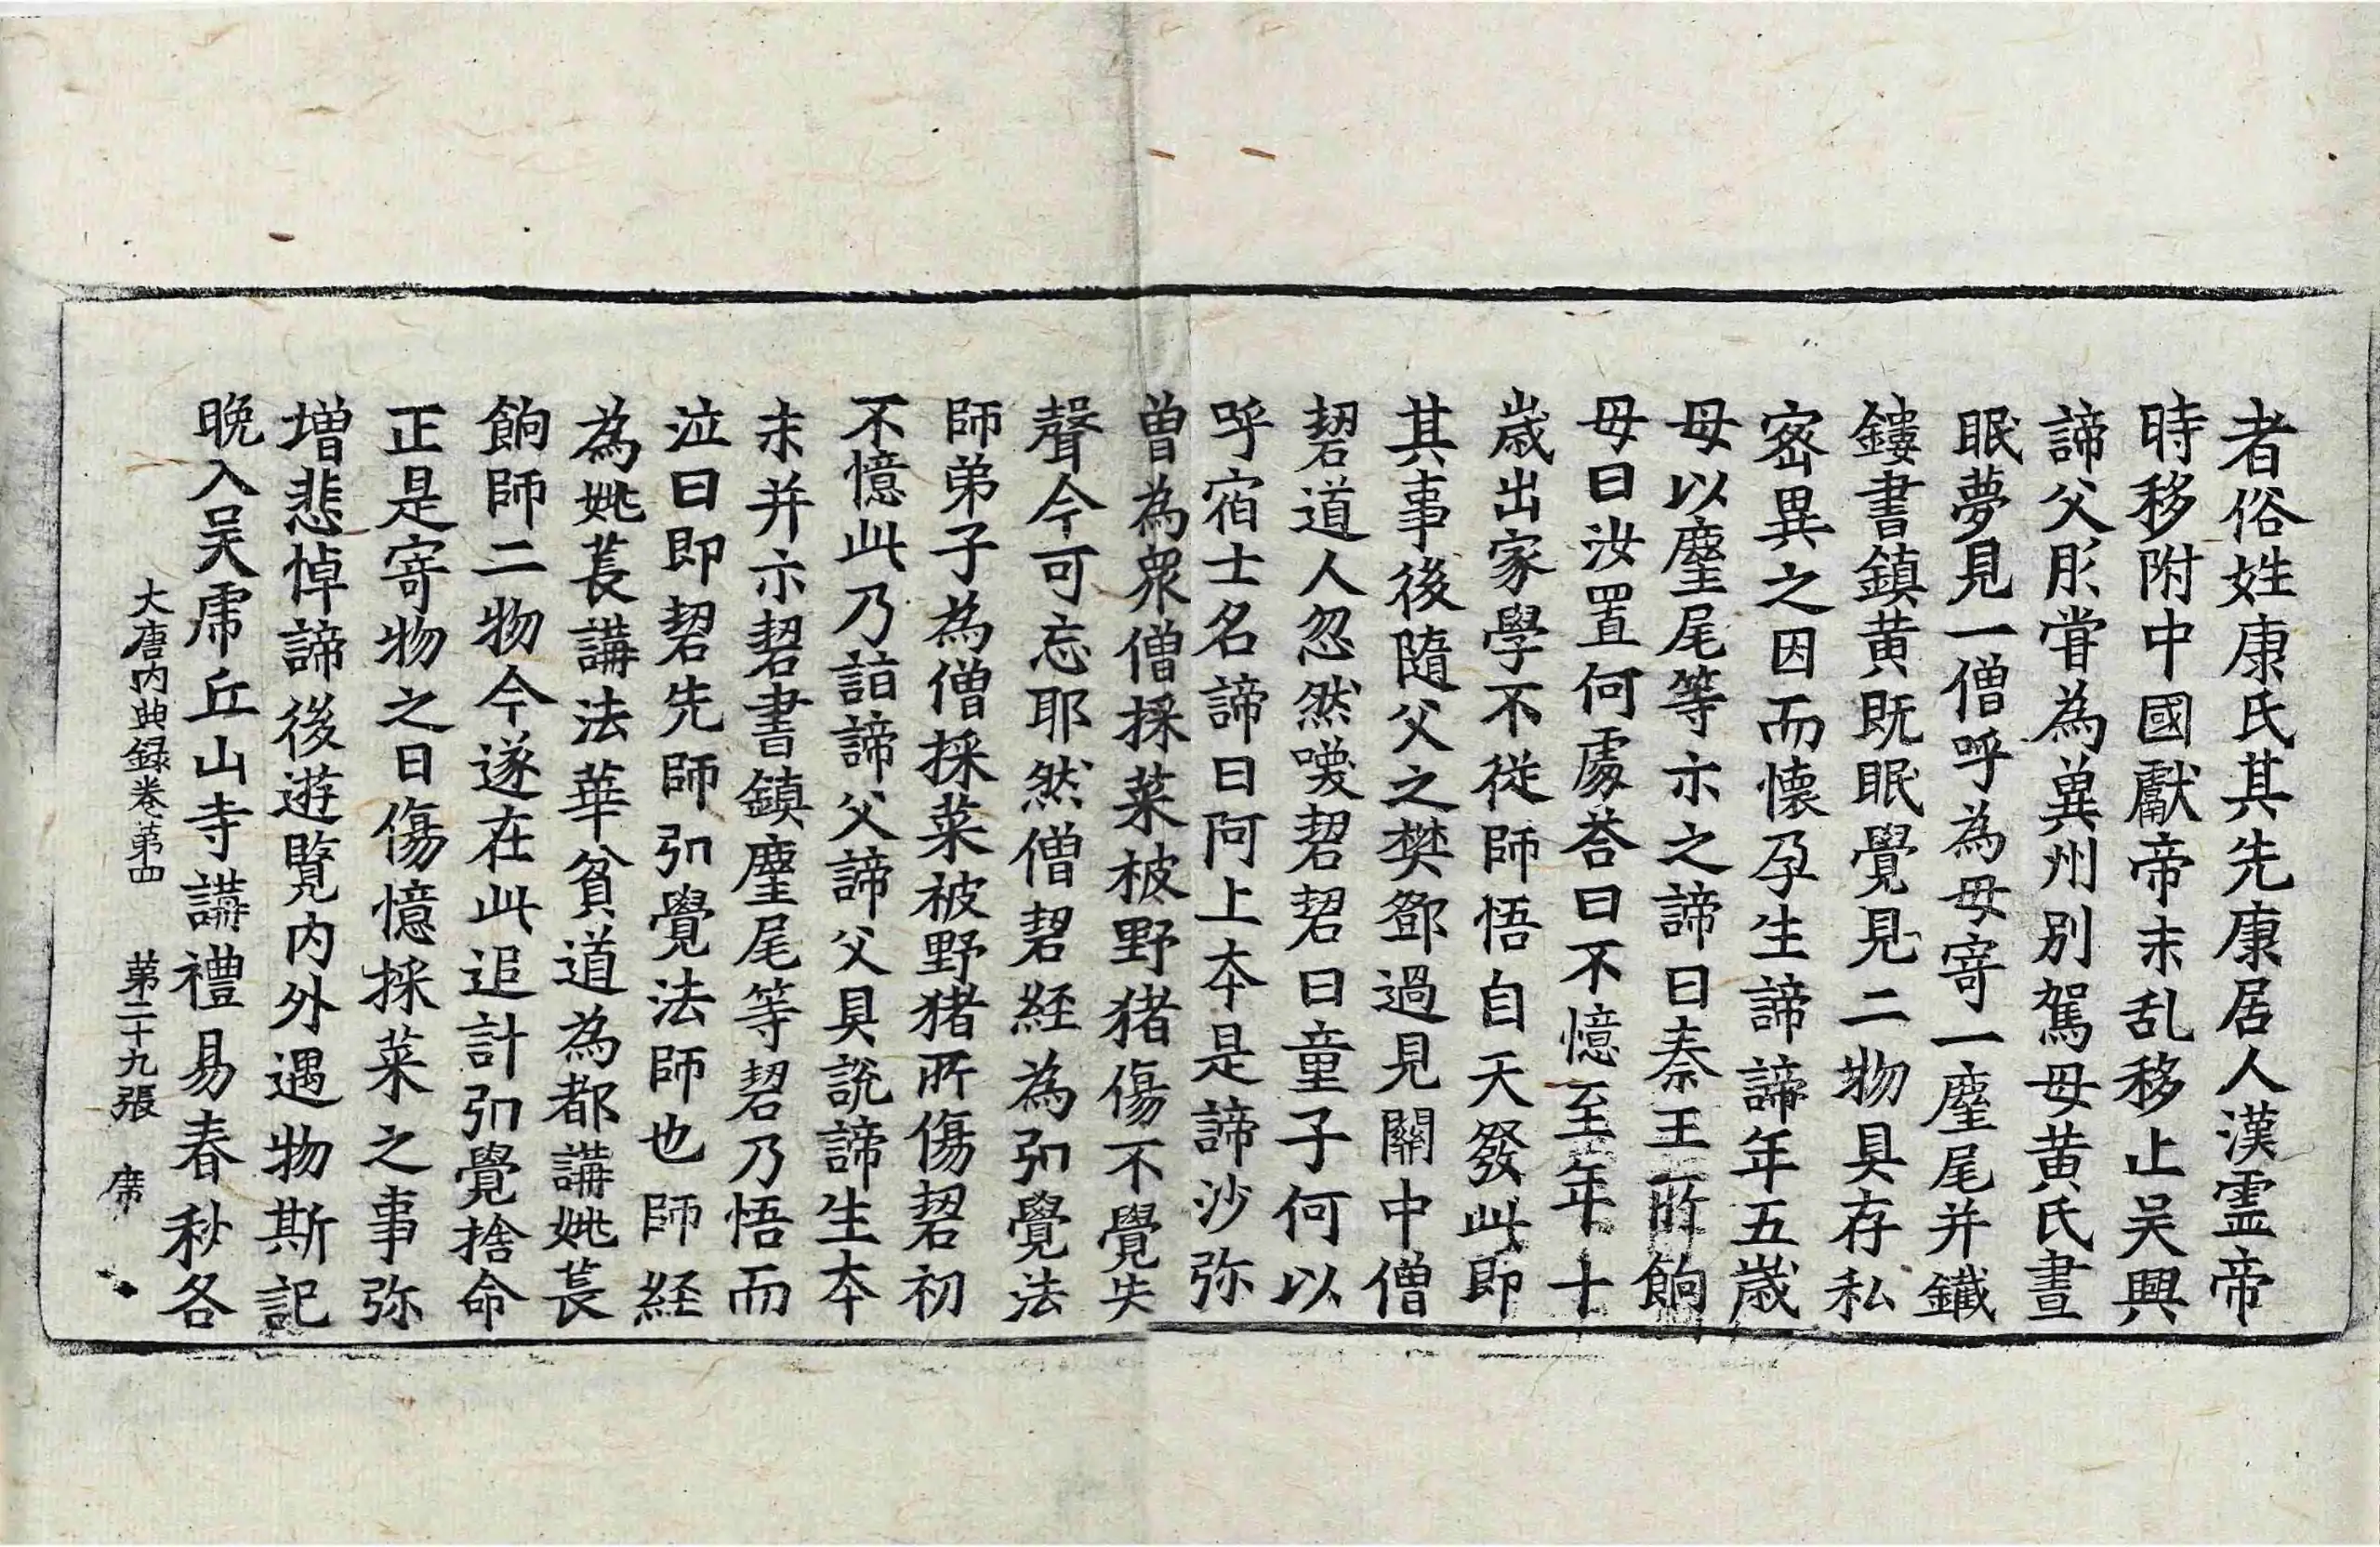 者俗姓康氏其先康居人漢霊帝
時移附中國獻帝末乱移止吴興
諦父肜甞為兾州別駕母黄氏晝
眠夢見一僧呼為母寄一麈尾并鐵
鏤書鎮黄既眠覺見二物具存私
宻異之因而懷孕生諦諦年五歳
母以麈尾等示之諦曰秦王所餉
母曰汝置何處荅曰不憶至年十
歳出家學不從師悟自天發此即
其事後隨父之樊鄧過見關中僧
䂮道人忽然喚䂮䂮曰童子何以
呼宿士名諦曰阿上夲是諦沙弥
曽為衆僧採菜被野猪傷不覺失
聲今可忘耶然僧䂮経為弘覺法
師弟子為僧採菜被野猪所傷䂮初
不憶此乃詣諦父諦父具說諦生夲
末并示䂮書鎮麈尾等䂮乃悟而
泣曰即䂮先師弘覺法師也師経
為姚萇講法華貧道為都講姚萇
餉師二物今遂在此追計弘覺捨命
正是寄物之日傷憶採菜之事弥
増悲悼諦後遊覧内外遇物斯記
晩入吴虎丘山寺講禮易春秋各
大唐内典録巻苐四　苐二十九張　席